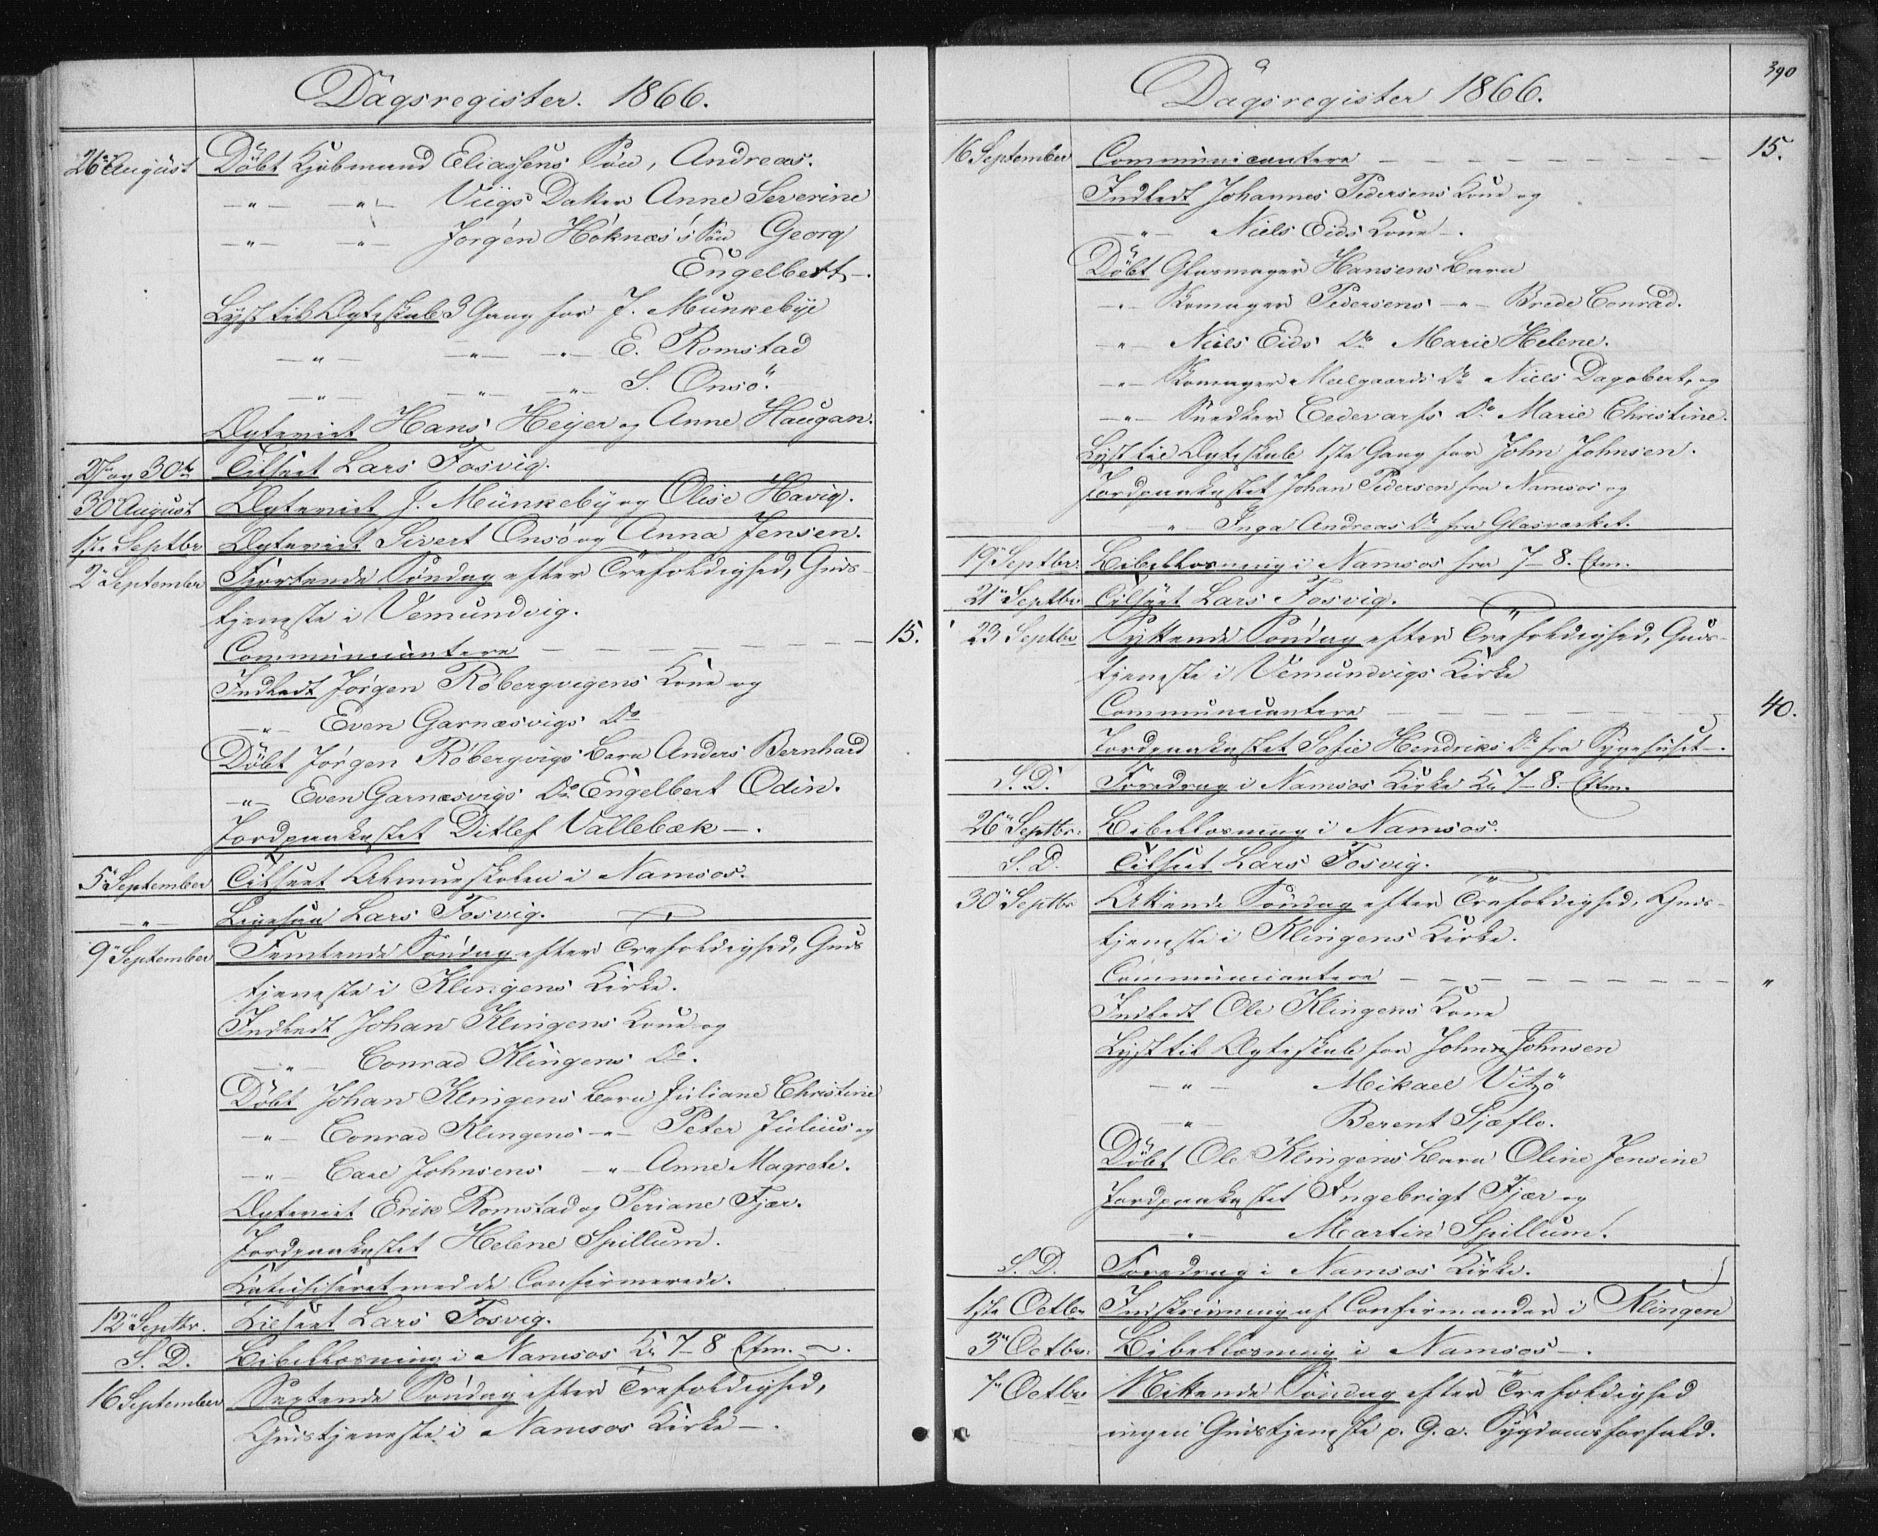 Dagsregister. 1866.
26 August Döbt Kjøbmand Eliassens Søn, Andreas.
-"- -"- Viigs Datter Anne Severine
-"- -"- Jørgen Høknæs's Søn Georg
Engelbert -.
Lyst til Ægteskab 3 Gang for J. Munkebye
-"- -"- -"- E. Romstad
-"- -"- -"- S. Onsö.
Ægteviet Hans Heijer og Anne Haugan.
27 og 30te Tilseet Lars Fosvig.
30 August Ægteviet J. Münkeby og Olise Havig.
1ste Septbr Ægteviet Sivert Onsö og Anna Jensen.
2 September Fjortende Söndag efter Trefoldighed, Guds-
tjeneste i Vemundvig.
Communicantere - - - - - - 15.
Indledt Jørgen Röbergvigens Kone og
-"- Even Garnæsvigs Do
Döbt Jørgen Röbergvigs Barn Anders Bernhard
-"- Even Garnæsvigs Do Engelbert Odin.
Jordpaakastet Ditlef Vallebæk -.
5 September Tilseet Almueskolen i Namsos.
" Ligesaa Lars Fosvig.
9 September Femtende Söndag efter Trefoldighed, Guds
tjeneste i Klingens Kirke.
Indledt Johan Klingens Kone og
-"- Conrad Klingens Do.
Döbt Johan Klingens Barn Juliane Christine
-"- Conrad Klingens -"- Peter Julius og
-"- Carl Johnsens -"- Anne Magrete.
Ægteviet Erik Romstad og Periane Fjær.
Jordpaakastet Helene Spillum.
Katechiseret med de Confirmerede.
12 Septbr. Tilseet Lars Fosvig.
S. D. Bibellæsning i Namsos Kl 7-8 Eftm. -.
16 September Sextende Söndag efter Trefoldighed,
Gudstjeneste i Namsos Kirke -.
390
Dagsregister 1866.
16 September Communicantere - - - - - - 15.
Indledt Johannes Pedersens Kone og
-"- Niels Eids Kone -.
Döbt Glasmager Hansens Barn
-"- Skomager Pedersens -"- Brede Conrad.
-"- Niels Eids Do Marie Helene.
-"- Skomager Melgaards Do Niels Dagobert, og
-"- Snedker Do Marie Christine.
Lyst til Ægteskab 1ste Gang for John Johnsen.
Jordpaakastet Johan Pedersen fra Namsos og
-"- Inga Andreas Dr fra Glasværket.
19 Septbr. Bibellæsning i Namsos fra 7-8. Eftm.
21 Septbr Tilseet Lars Fosvig.
23 Septbr Syttende Söndag efter Trefoldighed, Guds-
tjeneste i Vemundvigs Kirke
Communicantere - - - - - - 40.
Jordpaakastet Sofie Hendriks Dr fra Sygehuset -.
S. D. Foredrag i Namsos Kirke Kl 7-8. Eftm.
26 Septbr: Bibellæsning i Namsos.
S. D. Tilseet Lars Fosvig.
30 Septbr Attende Söndag efter Trefoldighed, Guds-
tjeneste i Klingens Kirke.
Communicantere - - - - - - "
Indledt Ole Klingens Kone
Lyst til Ægteskab for John Johnsen
-"- Mikael Vitsö
-"- Berent Sjæflo.
Döbt Ole Klingens Barn Oline Jensine
Jordpaakastet Ingebrigt Fjær og
-"- Martin Spillum.
S. D. Foredrag i Namsos Kirke.
1ste Octbr Indskrivning af Confirmander i Klingen
3 Octbr. Bibellæsning i Namsos -.
7 Octbr Nittende Söndag efter Trefoldighed
ingen Gudstjeneste p. G. a. Sygdomsforfald.